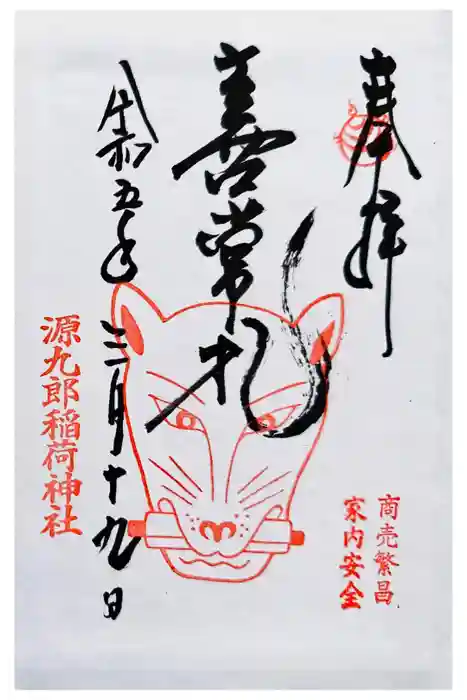 奉拝
善常
令和五年三月十九日
源九郎稲荷神社
商売繁昌
家内安全